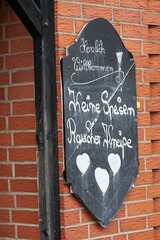 Herzlich
Willkommen
Keine Speisen
Raucher Kneipe